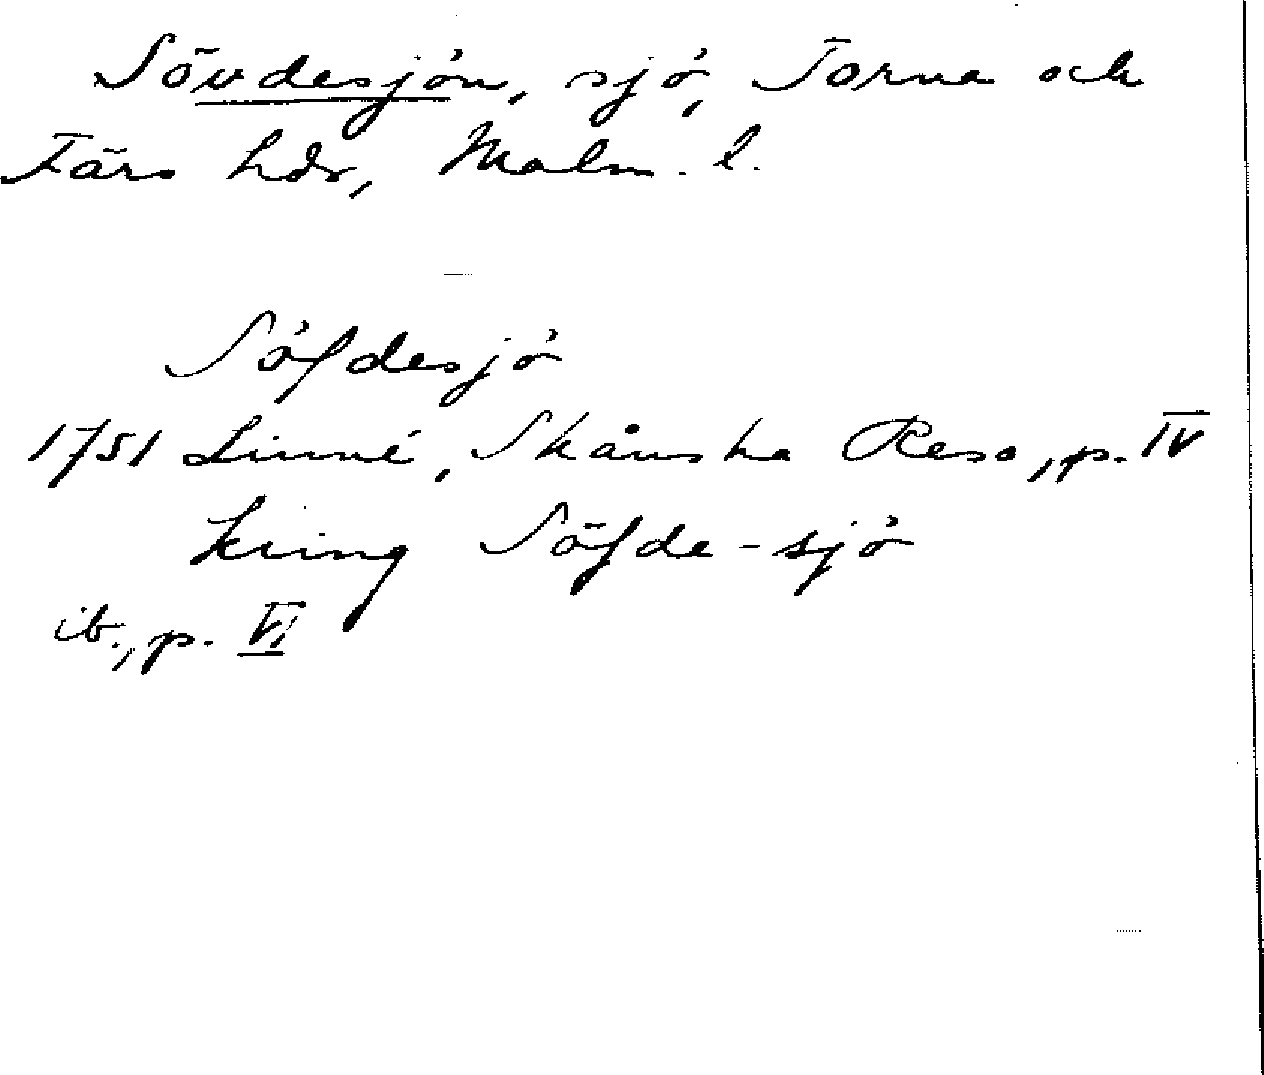 Sövdesjön, sjö, Torna och
Färs hdr, Malm. l.
Söfdesjö
1751 Linné, Skånska Resa, p. IV
kring Söfde-sjö
ib., p. VI